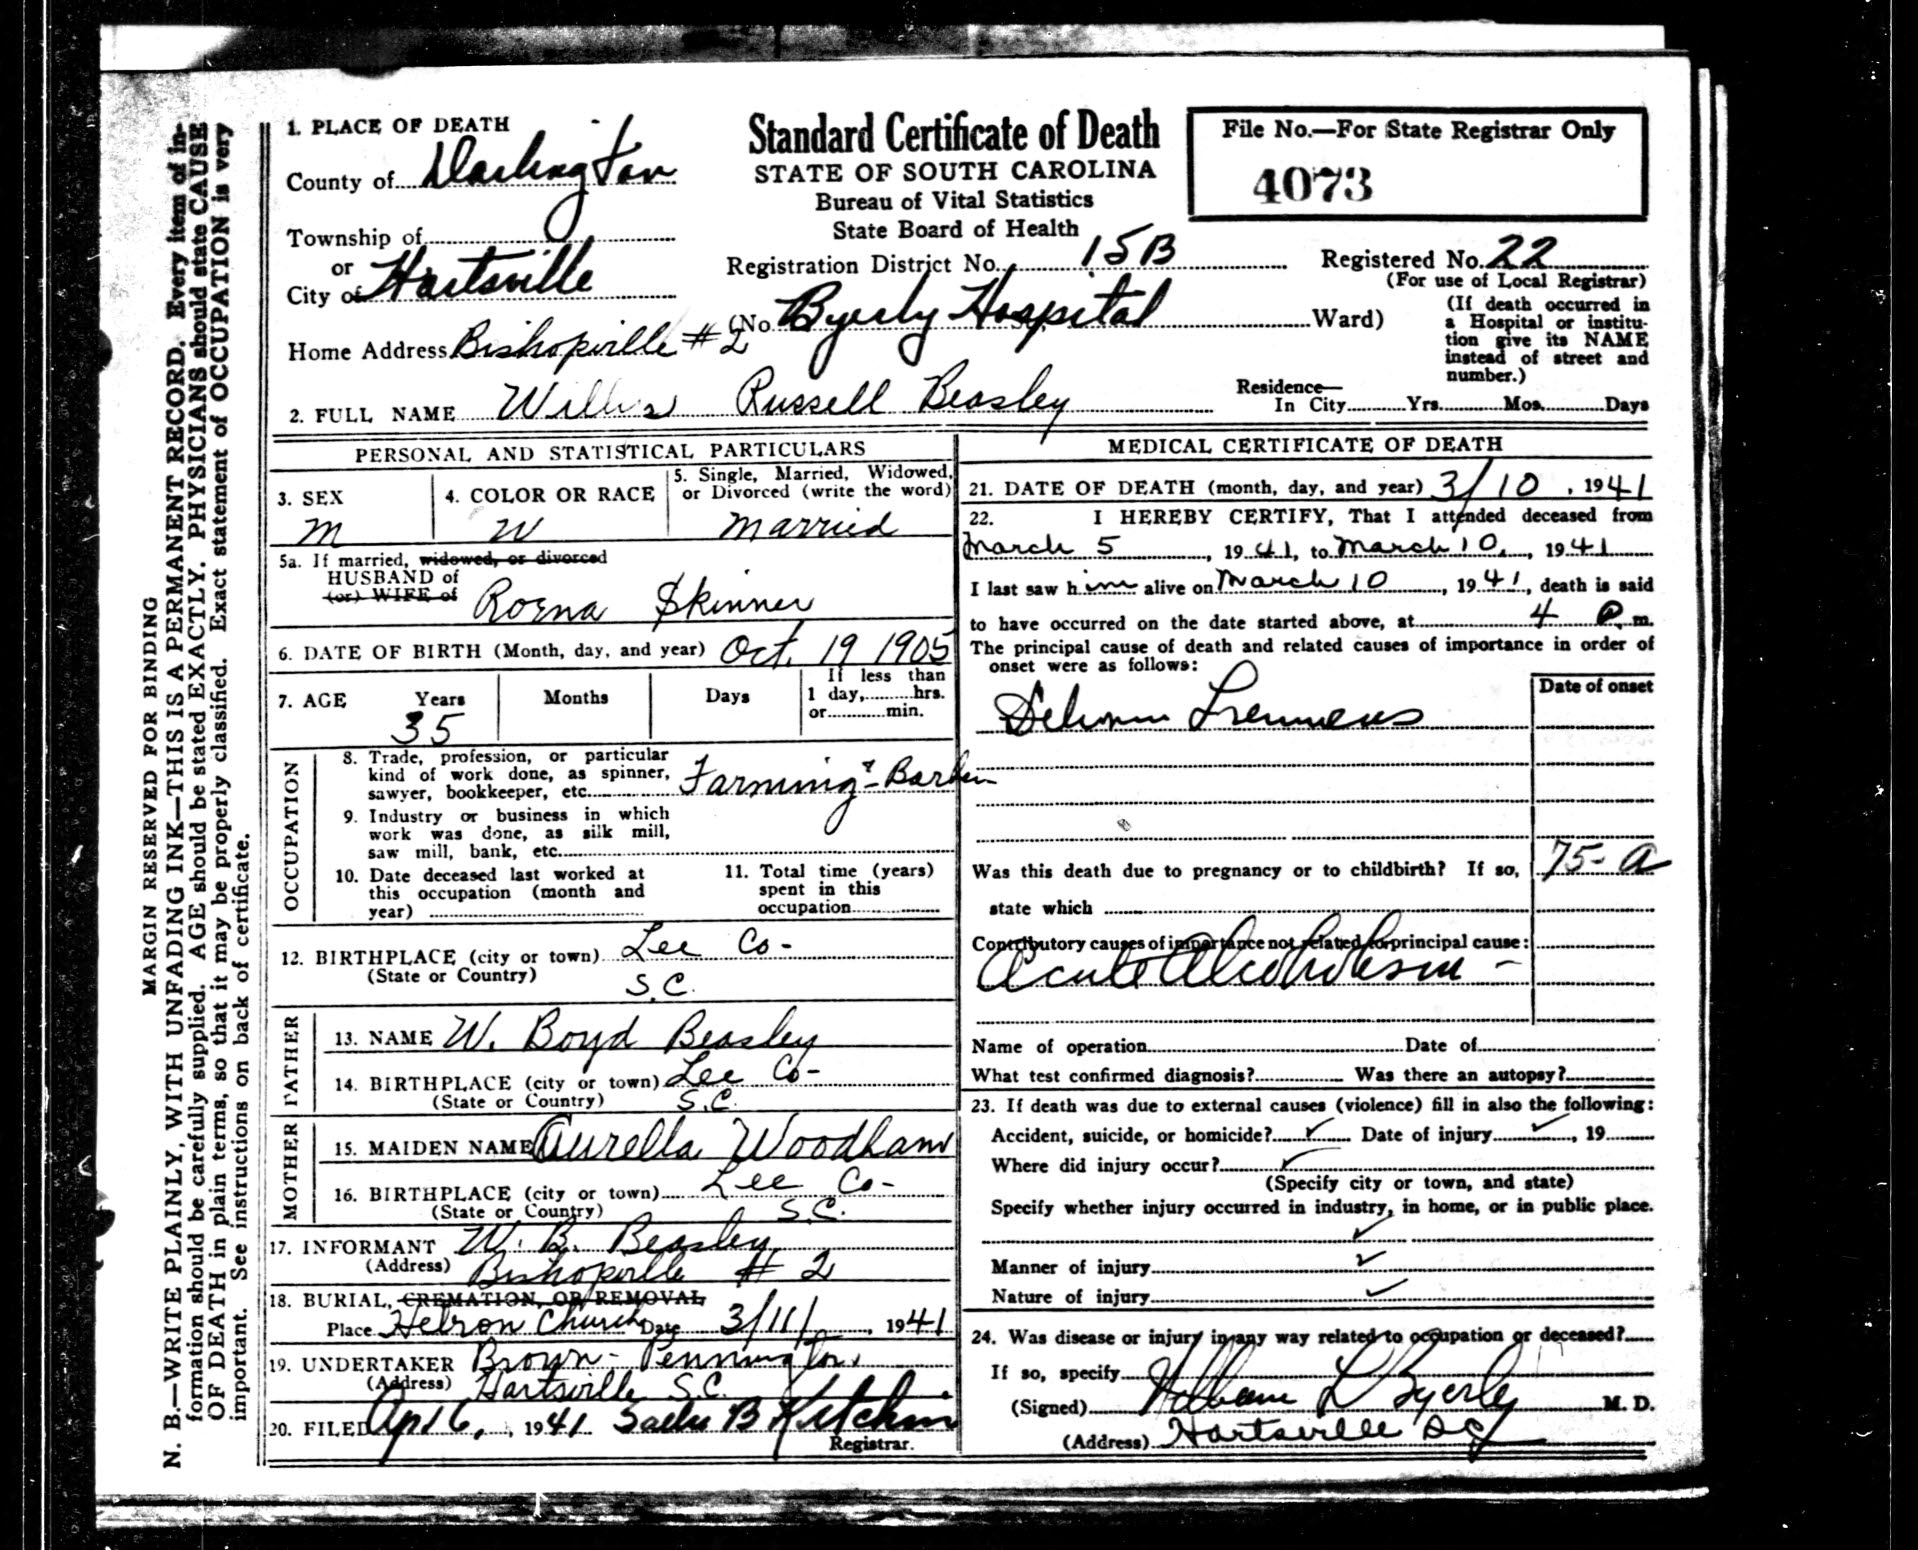 MARGIN RESERVED FOR BINDING
N. B.—WRITE PLAINLY, WITH UNFADING INK—THIS IS A PERMANENT RECORD. Every item of in-
formation should be carefully supplied. AGE should be stated EXACTLY. PHYSICIANS should state CAUSE
OF DEATH in plain terms, so that it may be properly classified. Exact statement of OCCUPATION is very
important. See instructions on back of certificate.
1. PLACE OF DEATH
County of Darlington
Township of
or
City of Hartsville
Standard Certificate of Death
STATE OF SOUTH CAROLINA
Bureau of Vital Statistics
State Board of Health
File No.—For State Registrar Only
4073
Registration District No. 15B
Registered No. 22
(For use of Local Registrar)
(No. Byerly Hospital St., Ward)
(If death occurred in
a Hospital or institu-
tion give its NAME
instead of street and
number.)
Home Address Bishopville #2
2. FULL NAME Willis Russell Beasley
Residence—
In City Yrs. Mos. Days
PERSONAL AND STATISTICAL PARTICULARS
3. SEX
M
4. COLOR OR RACE
W
5. Single, Married, Widowed,
or Divorced (write the word)
Married
5a. If married, widowed, or divorced
HUSBAND of
(or) WIFE of
Roena Skinner
6. DATE OF BIRTH (Month, day, and year) Oct. 19 1905
7. AGE
Years
35
Months
Days
If less than
1 day, hrs.
or min.
OCCUPATION
8. Trade, profession, or particular
kind of work done, as spinner,
sawyer, bookkeeper, etc. Farming & Barber
9. Industry or business in which
work was done, as silk mill,
saw mill, bank, etc.
10. Date deceased last worked at
this occupation (month and
year)
11. Total time (years)
spent in this
occupation
12. BIRTHPLACE (city or town) Lee Co-
(State or Country) S.C.
FATHER
13. NAME W. Boyd Beasley
14. BIRTHPLACE (city or town) Lee Co-
(State or Country) S.C.
MOTHER
15. MAIDEN NAME Aurella Woodham
16. BIRTHPLACE (city or town) Lee Co-
(State or Country) S.C.
17. INFORMANT W. B. Beasley
(Address) Bishopville #2
18. BURIAL, CREMATION, OR REMOVAL
Place Hebron Church Date 3/11/, 1941
19. UNDERTAKER Brown-Pennington
(Address) Hartsville S.C.
20. FILED Apr 6, 1941 B Kitchin
Registrar.
MEDICAL CERTIFICATE OF DEATH
21. DATE OF DEATH (month, day, and year) 3/10, 1941
22. I HEREBY CERTIFY, That I attended deceased from
March 5, 1941, to March 10, 1941
I last saw him alive on March 10, 1941, death is said
to have occurred on the date started above, at 4 P. m.
The principal cause of death and related causes of importance in order of
onset were as follows:
Date of onset
Delirium Tremens
75-a
Was this death due to pregnancy or to childbirth? If so,
state which
Contributory causes of importance not related to principal cause:
Acute Alcoholism -
Name of operation Date of
What test confirmed diagnosis? Was there an autopsy?
23. If death was due to external causes (violence) fill in also the following:
Accident, suicide, or homicide? ✓ Date of injury ✓, 19
Where did injury occur? ✓
(Specify city or town, and state)
Specify whether injury occurred in industry, in home, or in public place.
✓
Manner of injury ✓
Nature of injury ✓
24. Was disease or injury in any way related to occupation or deceased?
If so, specify
(Signed) William L Byerly M. D.
(Address) Hartsville SC